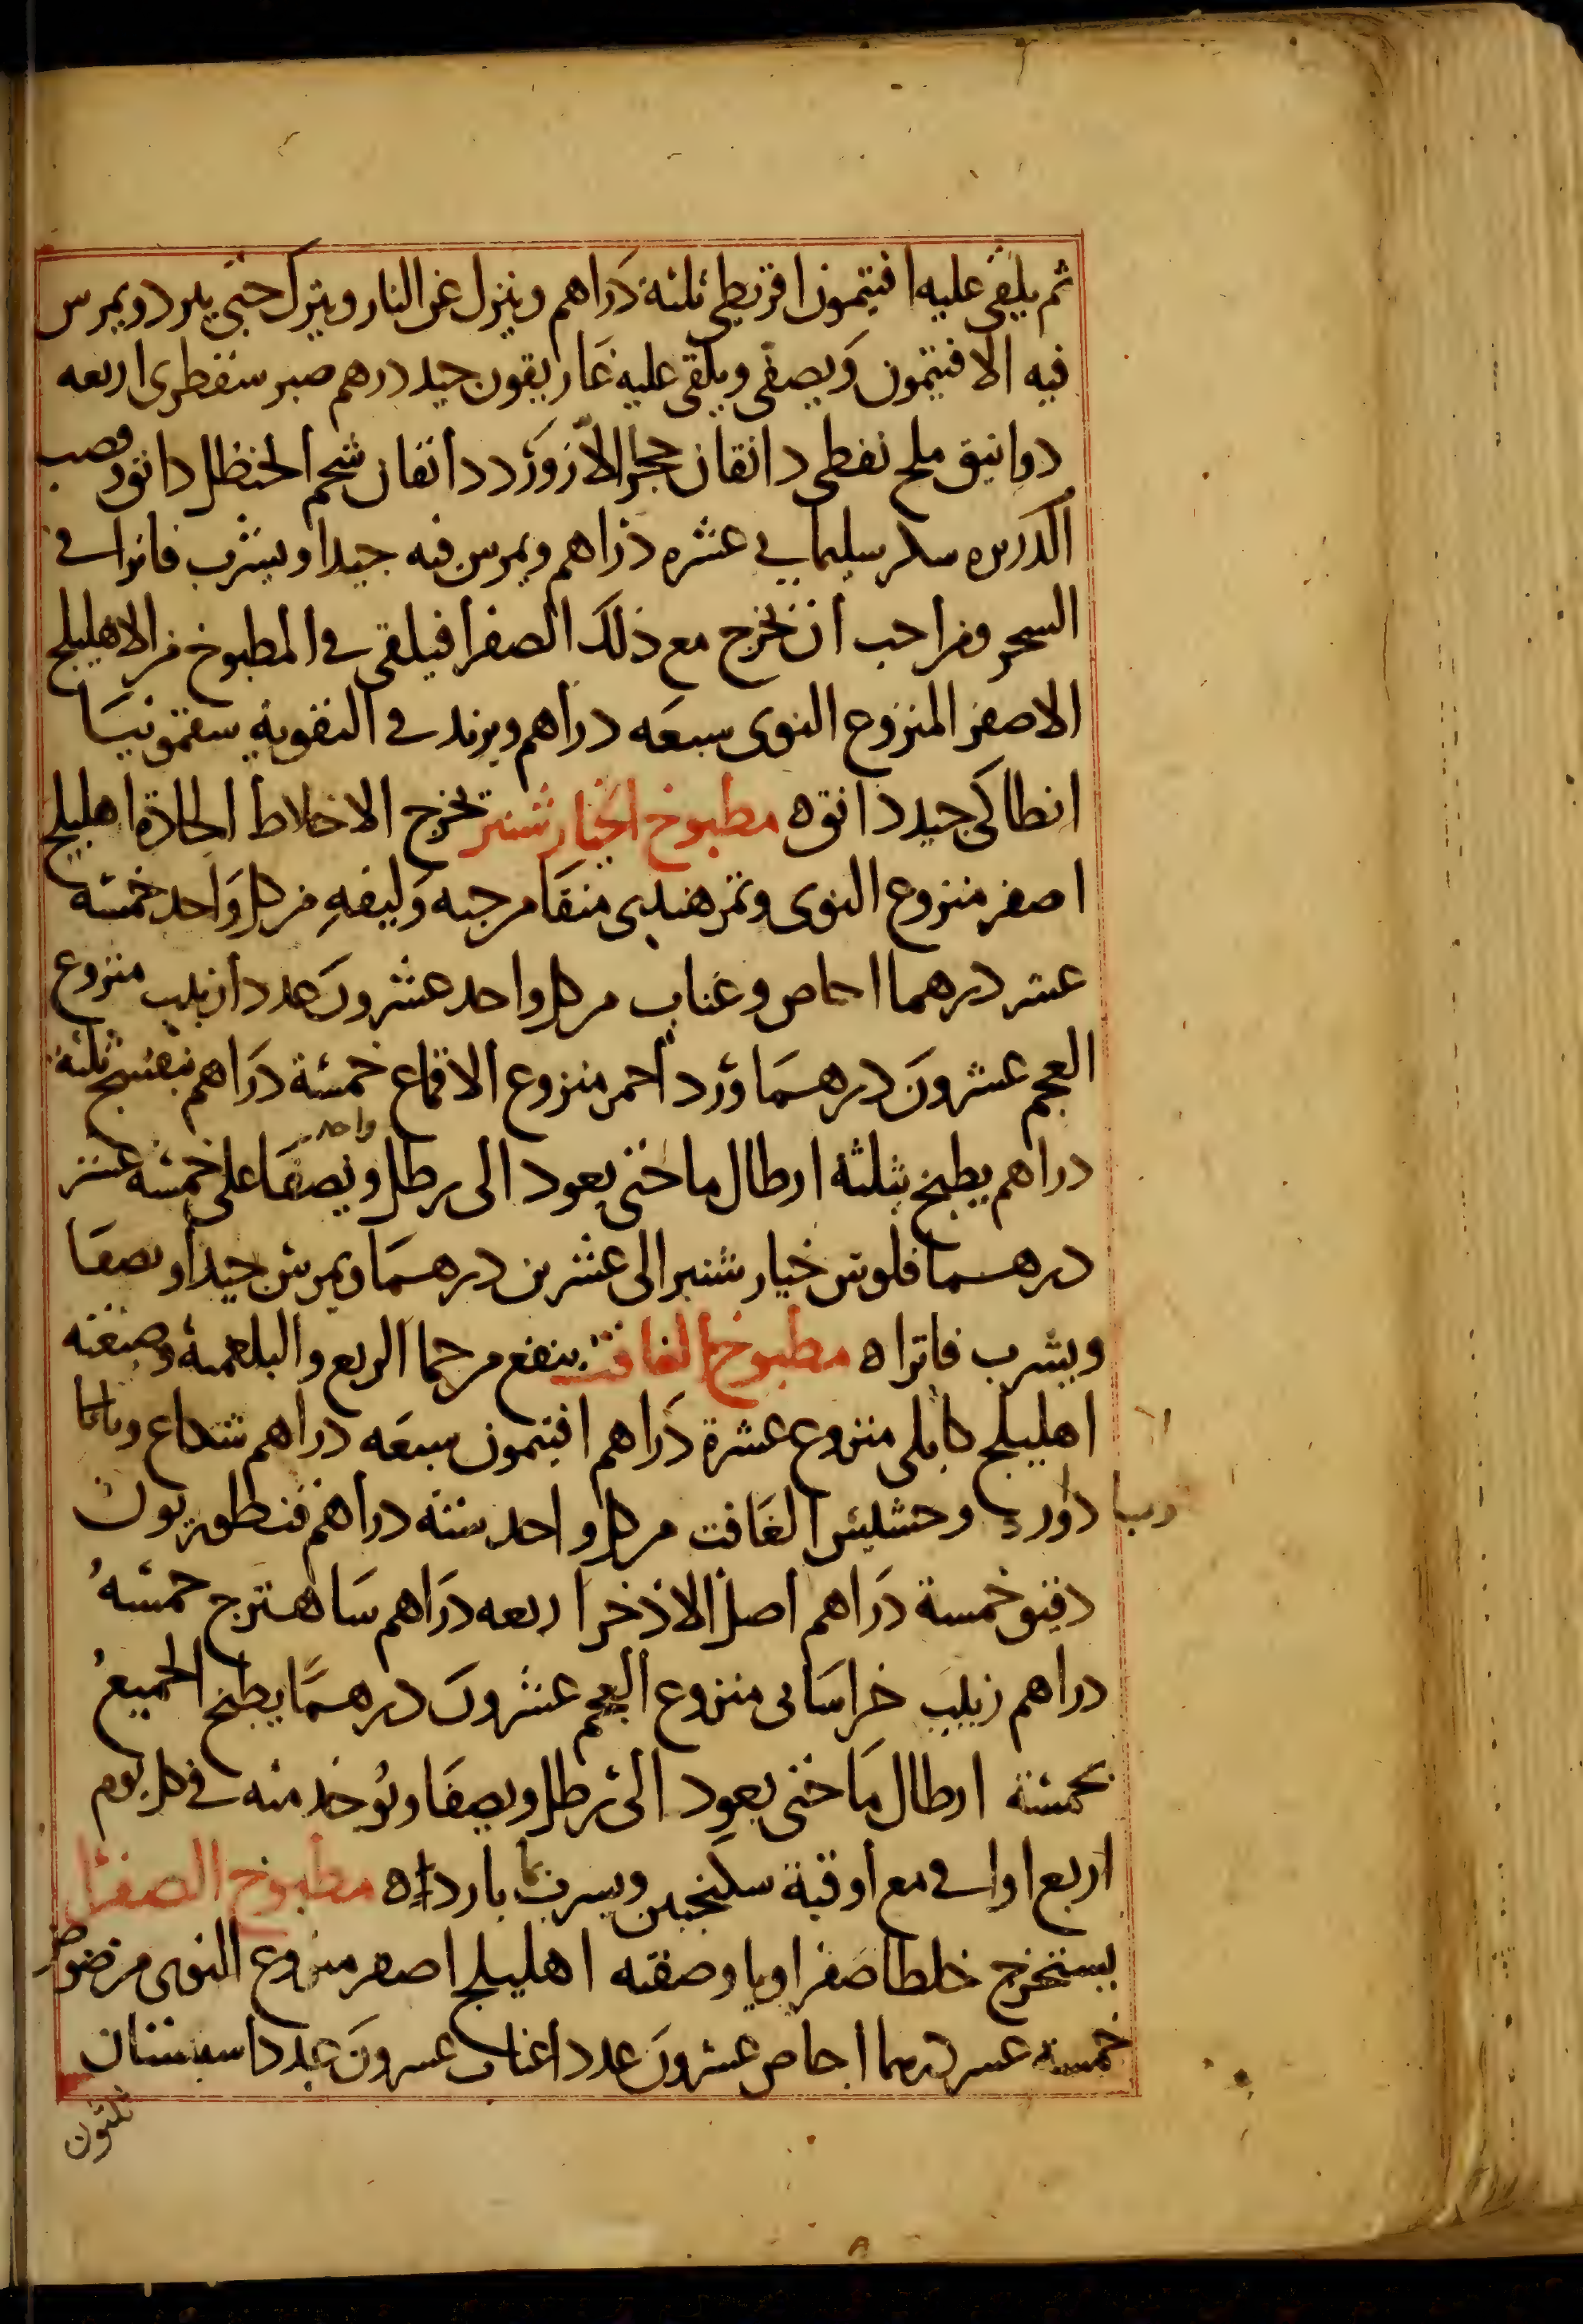 ثم يلقى عليه افتيمون اقريطي ثلثة دراهم وينزل عن النار ويترك حتى يبرد ويمرس
فيه الافتيمون ويصفى ويلقى عليه غاريقون جيد درهم صبر سقطرى اربعه
دوانيق ملح نفطى دانقان حجر اللازورد دانقان شحم الحنظل دانق
سكر سليمانى عشره دراهم ويمرس فيه جيدا ويشرب فاترا فى
السحر ومن احب ان يخرج مع ذلك الصفرا فيلقى فى المطبوخ من الاهليلج
الاصفر المنزوع النوى سبعه دراهم ويزيد فى التقوية سقمونيا
انطاكى جيد دانق ه مطبوخ الخيار شنبر يخرج الاخلاط الحادة اهليلج
اصفر منزوع النوى وتمر هندى منقا من حبه وليفه من كل واحد خمسه
عشر درهما اجاص وعناب من كل واحد عشرون عددا زبيب منزوع
العجم عشرون درهما ورد احمر منزوع الاقماع خمسة دراهم بنفسج ثلثه
دراهم يطبخ بثلثة ارطال ما حتى يعود الى رطل واحد ويصفا على خمسه عشر
درهما فلوس خيار شنبر الى عشرين درهما ويمرس جيدا ويصفا
ويشرب فاترا ه مطبوخ الغافت ينفع من حما الربع والبلغمية وصفته
اهليلج كابلى منزوع عشرة دراهم افتيمون سبعه دراهم شكاع
داورد وحشيش الغافت من كل واحد ستة دراهم قنطوريون
دقيق خمسة دراهم اصل الاذخر اربعه دراهم ساهترج خمسه
دراهم زبيب خراسانى منزوع العجم عشرون درهما يطبخ الجميع
بخمسة ارطال ما حتى يعود الى رطل ويصفا ويوخذ منه فى كل يوم
اربع اواق مع اوقية سكنجبين ويشرب باردا ه مطبوخ الصفرا
يستخرج خلطا صفراويا وصفته اهليلج اصفر منزوع النوى مرضوض
خمسة عشر درهما اجاص عشرون عددا عناب عشرون عددا سبستان
ثلثون